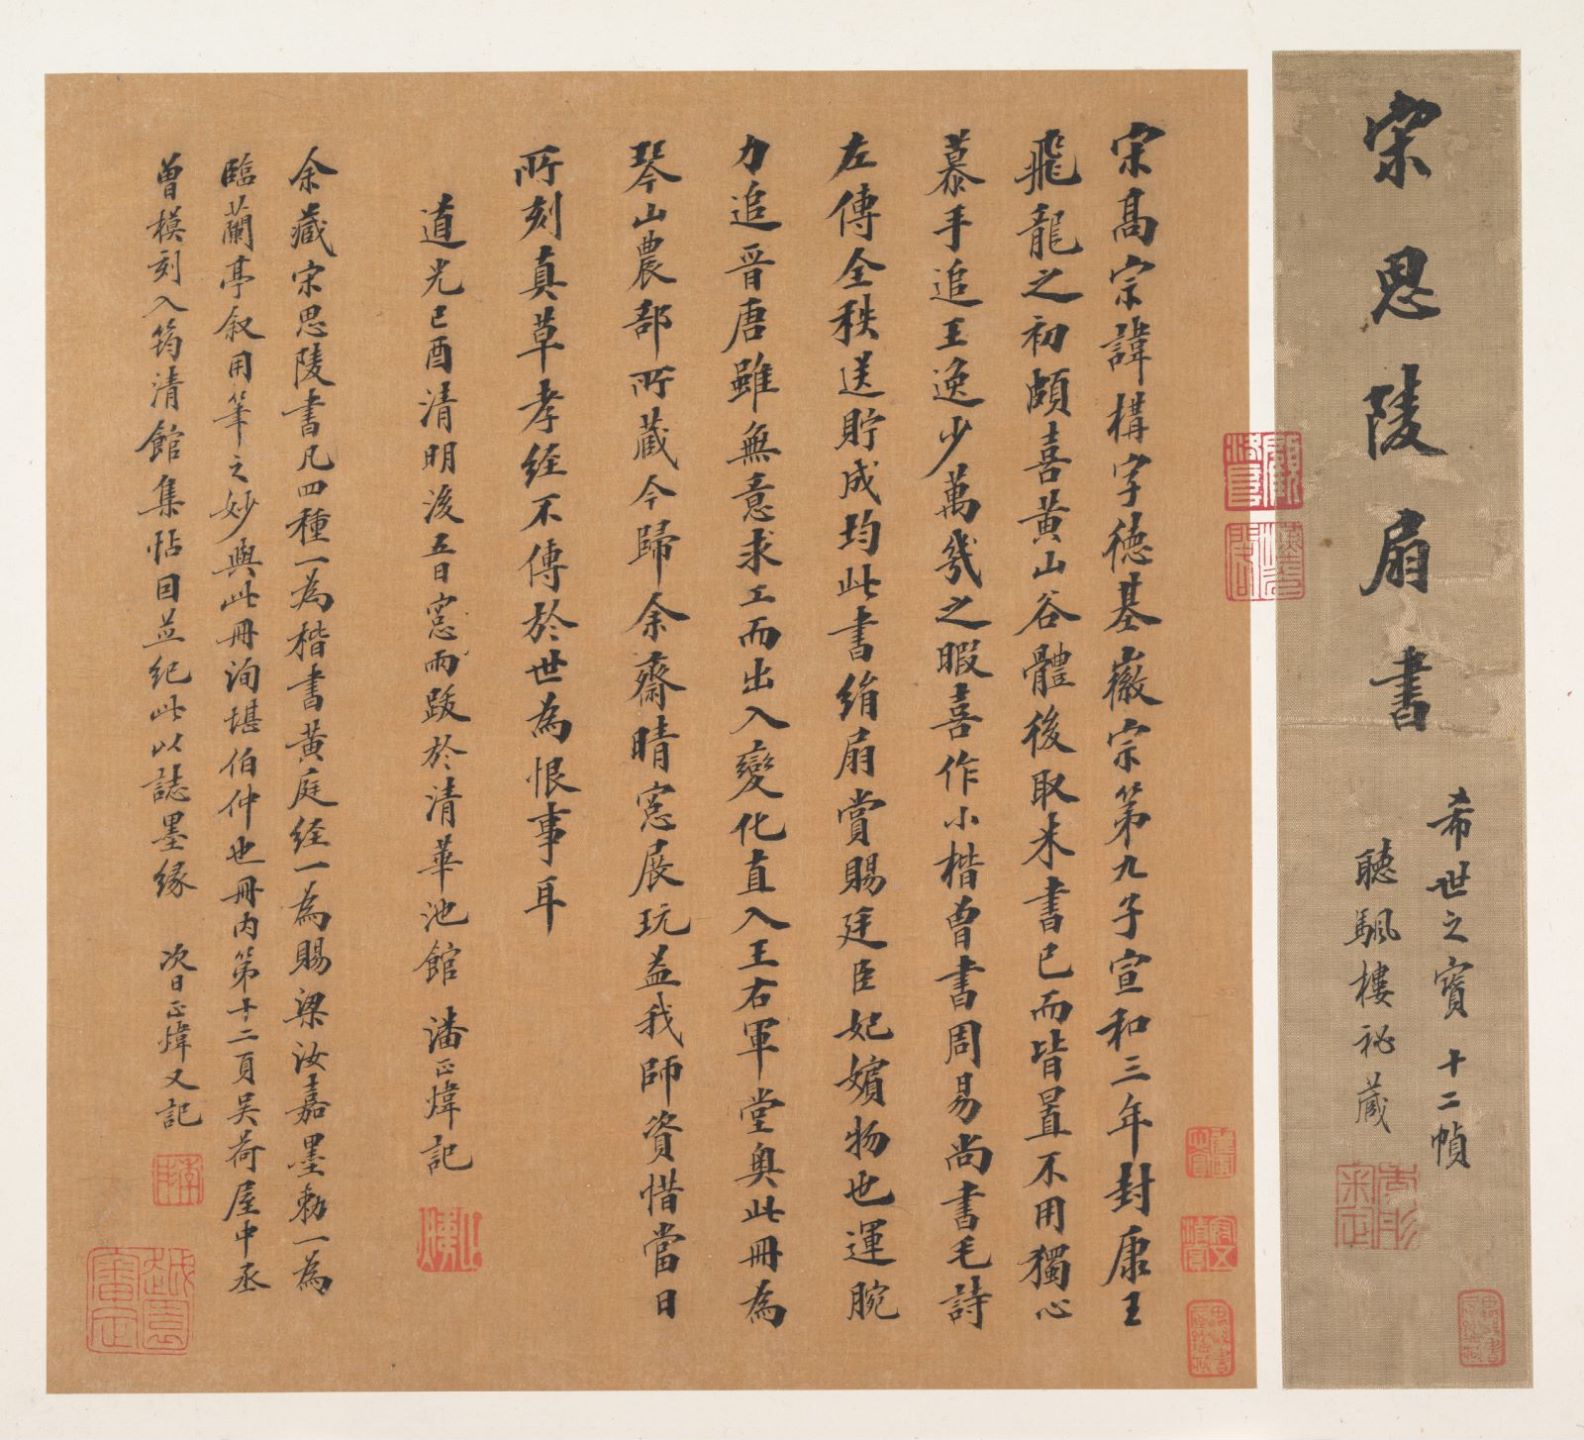 宋思陵扇書
希世之寶 十二幀
聽颿樓祕藏
宋髙宗諱構字德基徽宗第九子宣和三年封康王
飛龍之初頗喜黄山谷體後取米書已而皆置不用獨心
慕手追王逸少萬幾之暇喜作小楷曾書周易尚書毛詩
左傳全秩送貯成均此書絹扇賞賜廷臣妃嬪物也運腕
力追晉唐雖無意求工而出入變化直入王右軍堂奥此冊為
琴山農部所藏今歸余齋晴窓展玩益我師資惜當日
所刻真草孝经不傳於世為恨事耳
道光己酉清明後五日窓雨跋於清華池館 潘正煒記
余藏宋思陵書凡四種一為楷書黃庭经一為賜梁汝嘉墨勅一為
臨蘭亭叙用筆之妙與此冊洵堪伯仲也冊内第十二頁吴荷屋中丞
曾模刻入筠清館集帖因並紀此以誌墨緣 次日正煒又記